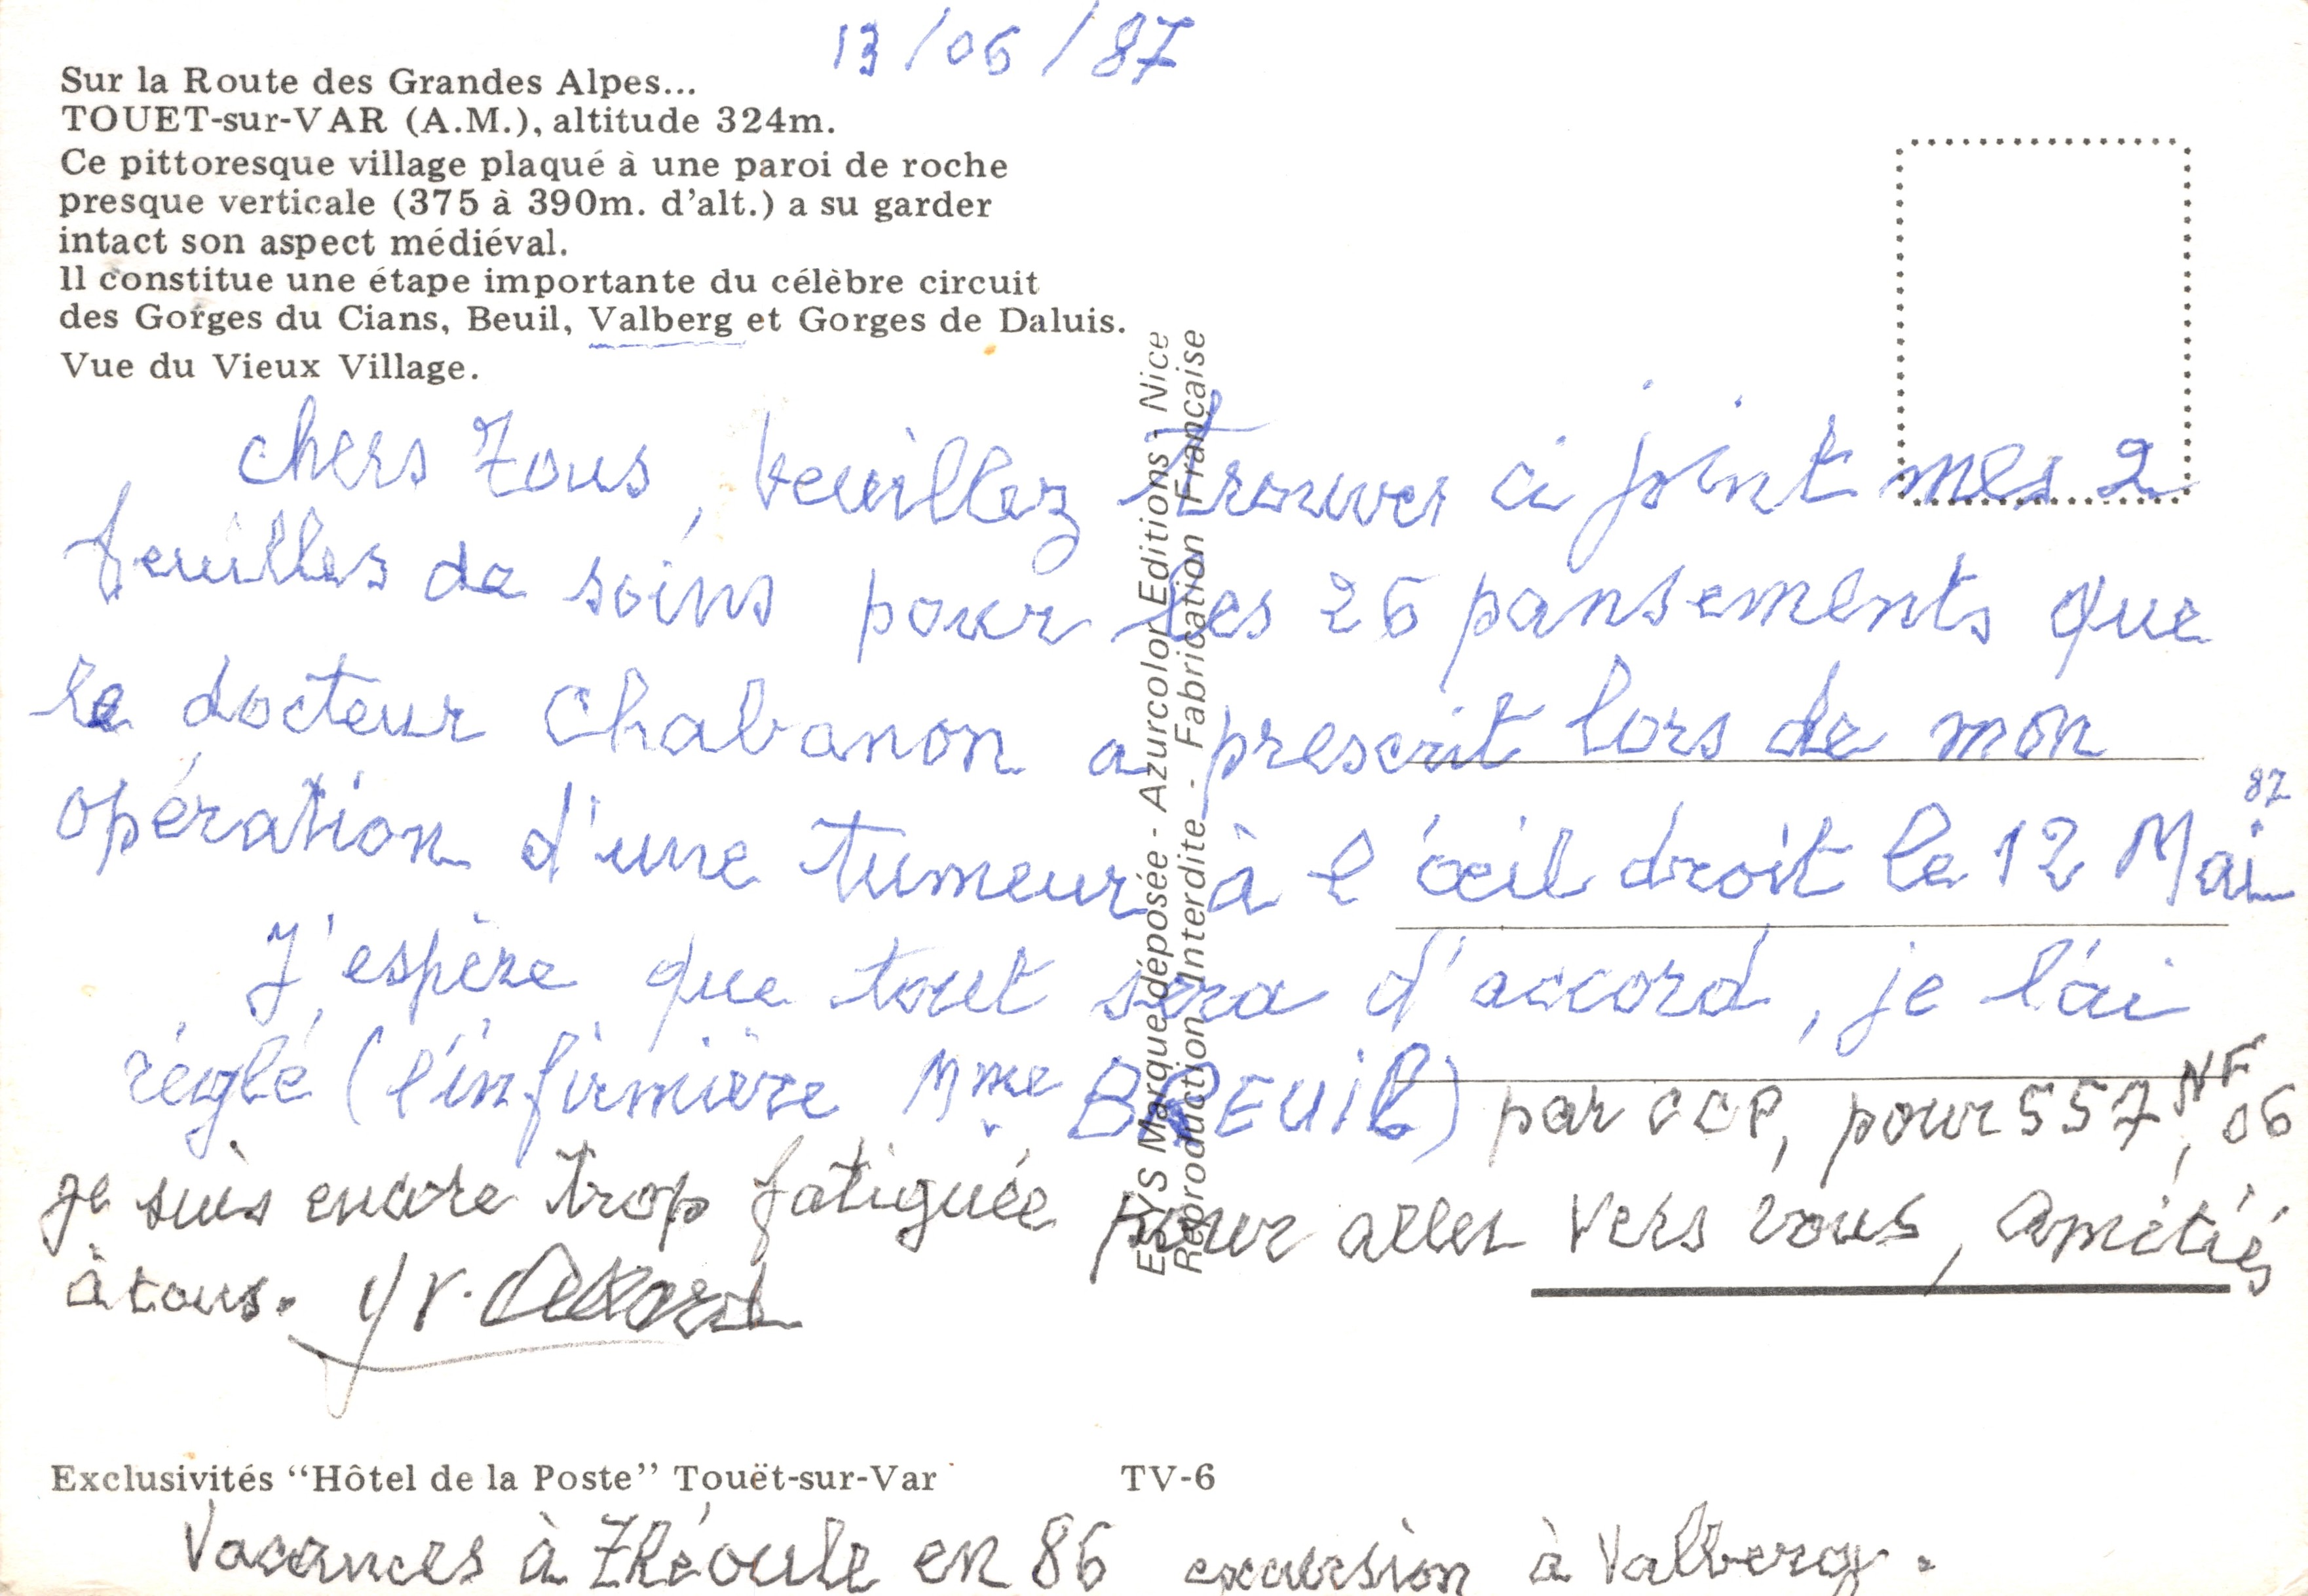 13/06/87
Sur la Route des Grandes Alpes...
TOUET-sur-VAR (A.M.), altitude 324m.
Ce pittoresque village plaqué à une paroi de roche
presque verticale (375 à 390m. d'alt.) a su garder
intact son aspect médiéval.
Il constitue une étape importante du célèbre circuit
des Gorges du Cians, Beuil, Valberg et Gorges de Daluis.
Vue du Vieux Village.
chers Tous, veuillez trouver ci joint mes 2
feuilles de soins pour les 26 pansements que
le docteur Chabanon a prescrit lors de mon
opération d'une tumeur à l'œil droit le 12 Mai 87
J'espère que tout sera d'accord, je l'ai
réglé (l'infirmière Mme BREUIL) par CCP, pour 557 NF, 06
je suis encore trop fatiguée pour aller vers vous, amitiés
à tous. Yv.
Exclusivités “Hôtel de la Poste” Touët-sur-Var TV-6
Vacances à Théoule en 86 excursion à Valberg.
Marque déposée - Azurcolor Editions - Nice
Reproduction Interdite - Fabrication Française